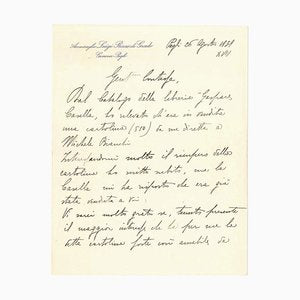 Ammiraglio Luigi Rizzo di Grado
Genova-Pegli
Pegli 26 Agosto 1939
XVII
Gent. Contessa,
Dal Catalogo della libreria Gaspare
Casella, ho rilevato ch'era in vendita
una cartolina (550) da me diretta a
Michele Bianchi
Interessandomi molto il ricupero della
cartolina ho scritto subito, ma la
Casella mi ha risposto che era già
stata venduta a Voi.
Vi sarei molto grato se, tenuto presente
il maggior interesse che ho per me la
detta cartolina foste così amabile da